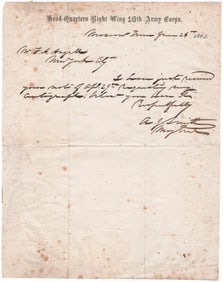 Head-Quarters Right Wing 16th Army Corps.
Moscow Tenn June 24th
Mr F. A. Angell
New York City
I have just received
your note of Apl 29th requesting my
autograph. you have it
Respectfully
A J Smith
Maj Genl